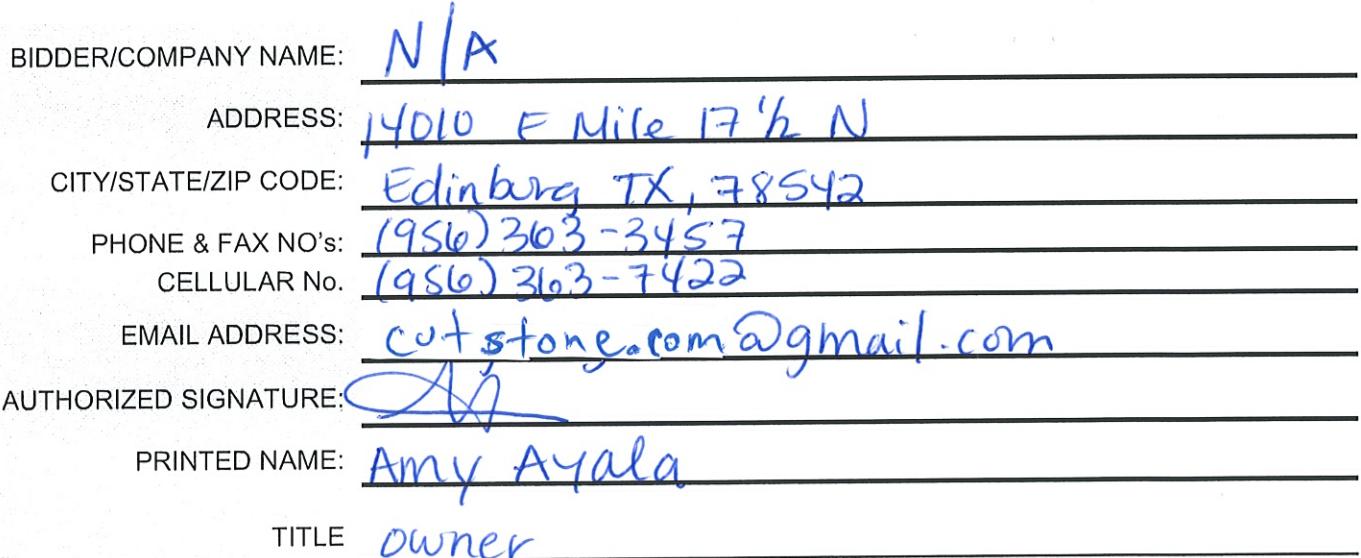 BIDDER/COMPANY NAME: N/A
ADDRESS: 14010 E Mile 17 1/2 N
CITY/STATE/ZIP CODE: Edinburg TX, 78542
PHONE & FAX NO's: (956) 363-3457
CELLULAR No. (956) 363-7422
EMAIL ADDRESS: cutstone.com@gmail.com
AUTHORIZED SIGNATURE:
PRINTED NAME: Amy Ayala
TITLE owner